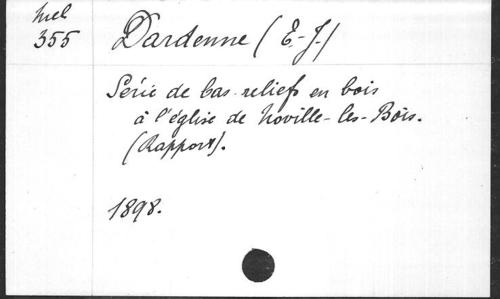 Mel
355
Dardenne (E.-J.)
Série de bas-reliefs en bois
à l'église de Noville-les-Bois.
(Rapport).
1898.